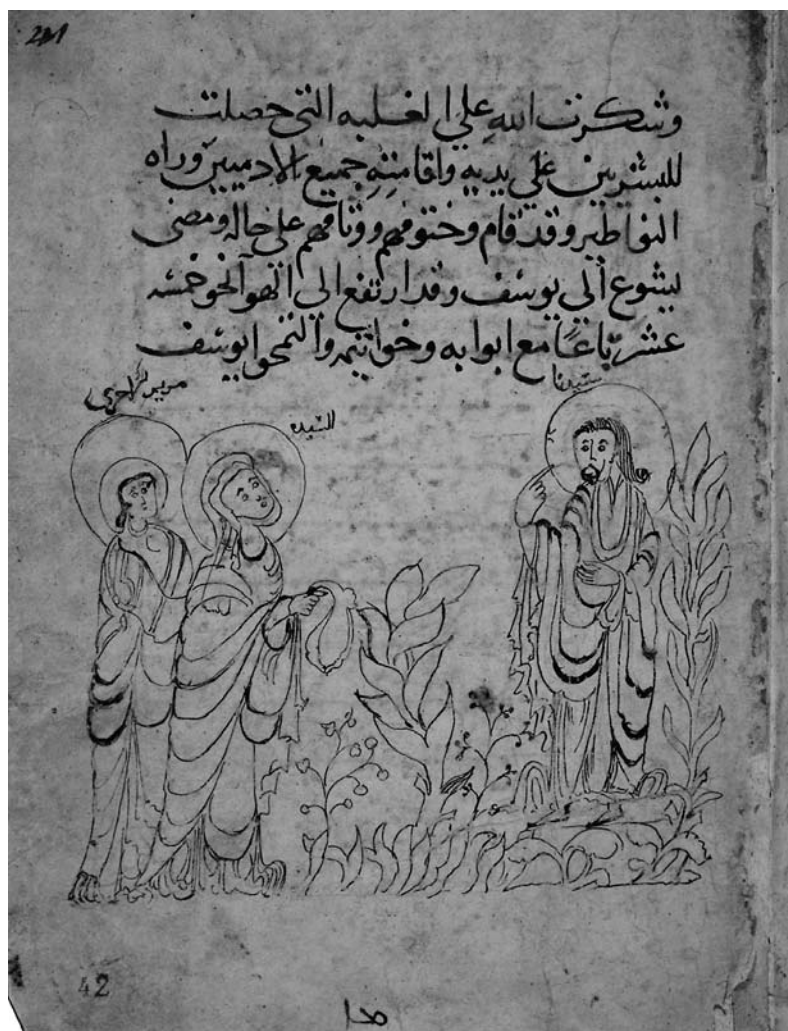 وشكرت الله علي الغلبه التي حصلت
للبشريين علي يديه واقامته جميع الادميين وراه
النواطير وقد قام وختوفهم ووثاقهم علي حاله ومضي
يشوع الي يوسف وقد ارتفع الي الهوا نحو خمسه
عشر باعا مع ابوابه وخواتيمه والتمحو ايوسف
سيدنا
مريم الاخري
السيده
42